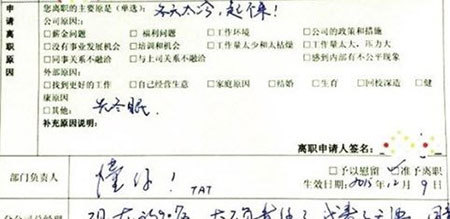 申请离职原因
您离职的主要原是(单选): 冬天太冷,起不来!
公司原因:
□薪金问题 □福利问题 □工作环境 □公司的政策和措施
□没有事业发展机会 □培训和机会 □工作量太少和太枯燥 □工作量太大,压力大
□同事关系不融洽 □与上司关系不融洽 □感到内部有不公平现象
外部原因:
□找到更好的工作 □自己经营生意 □家庭原因 □结婚 □生育 □回校深造 □健
康原因
□其他: 去冬眠.
补充原因说明:
离职申请人签名:
部门负责人
懂你! TAT
□予以慰留 准予离职
生效日期: 2015年12月9日